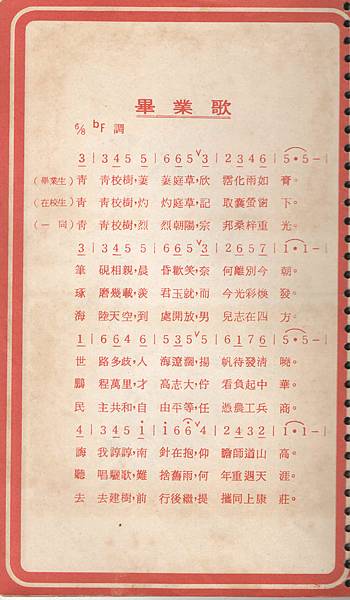 畢業歌
6/8 ♭F 調
3 | 3 4 5 5 | 6 6 5 ˅ 3 | 2 3 4 6 | 5 · 5 – |
(畢業生) 青 青校樹,萋 萋庭草,欣 霑化雨如 膏。
(在校生) 青 青校樹,灼 灼庭草,記 取囊螢窗 下。
(一 同) 青 青校樹,烈 烈朝陽,宗 邦桑梓重 光。
3 | 3 4 5 5 | 6 6 5 ˅ 3 | 2 6 5 7 | 1 · 1 – |
筆 硯相親,晨 昏歡笑,奈 何離別今 朝。
琢 磨幾載,羨 君玉就,而 今光彩煥 發。
海 陸天空,到 處開放,男 兒志在四 方。
1 | 6 6 4 6 | 5 3 5 ˅ 5 | 6 1 7 6 | 5 · 5 – |
世 路多歧,人 海遼濶,揚 帆待發清 曉。
鵬 程萬里,才 高志大,佇 看負起中 華。
民 主共和,自 由平等,任 憑農工兵 商。
4 | 3 4 5 i | i 6 6 ˅ 4 | 2 4 3 2 | 1 · 1 – |
誨 我諄諄,南 針在抱,仰 瞻師道山 高。
聽 唱驪歌,難 捨舊雨,何 年重遇天 涯。
去 去建樹,前 行後繼,提 攜同上康 莊。